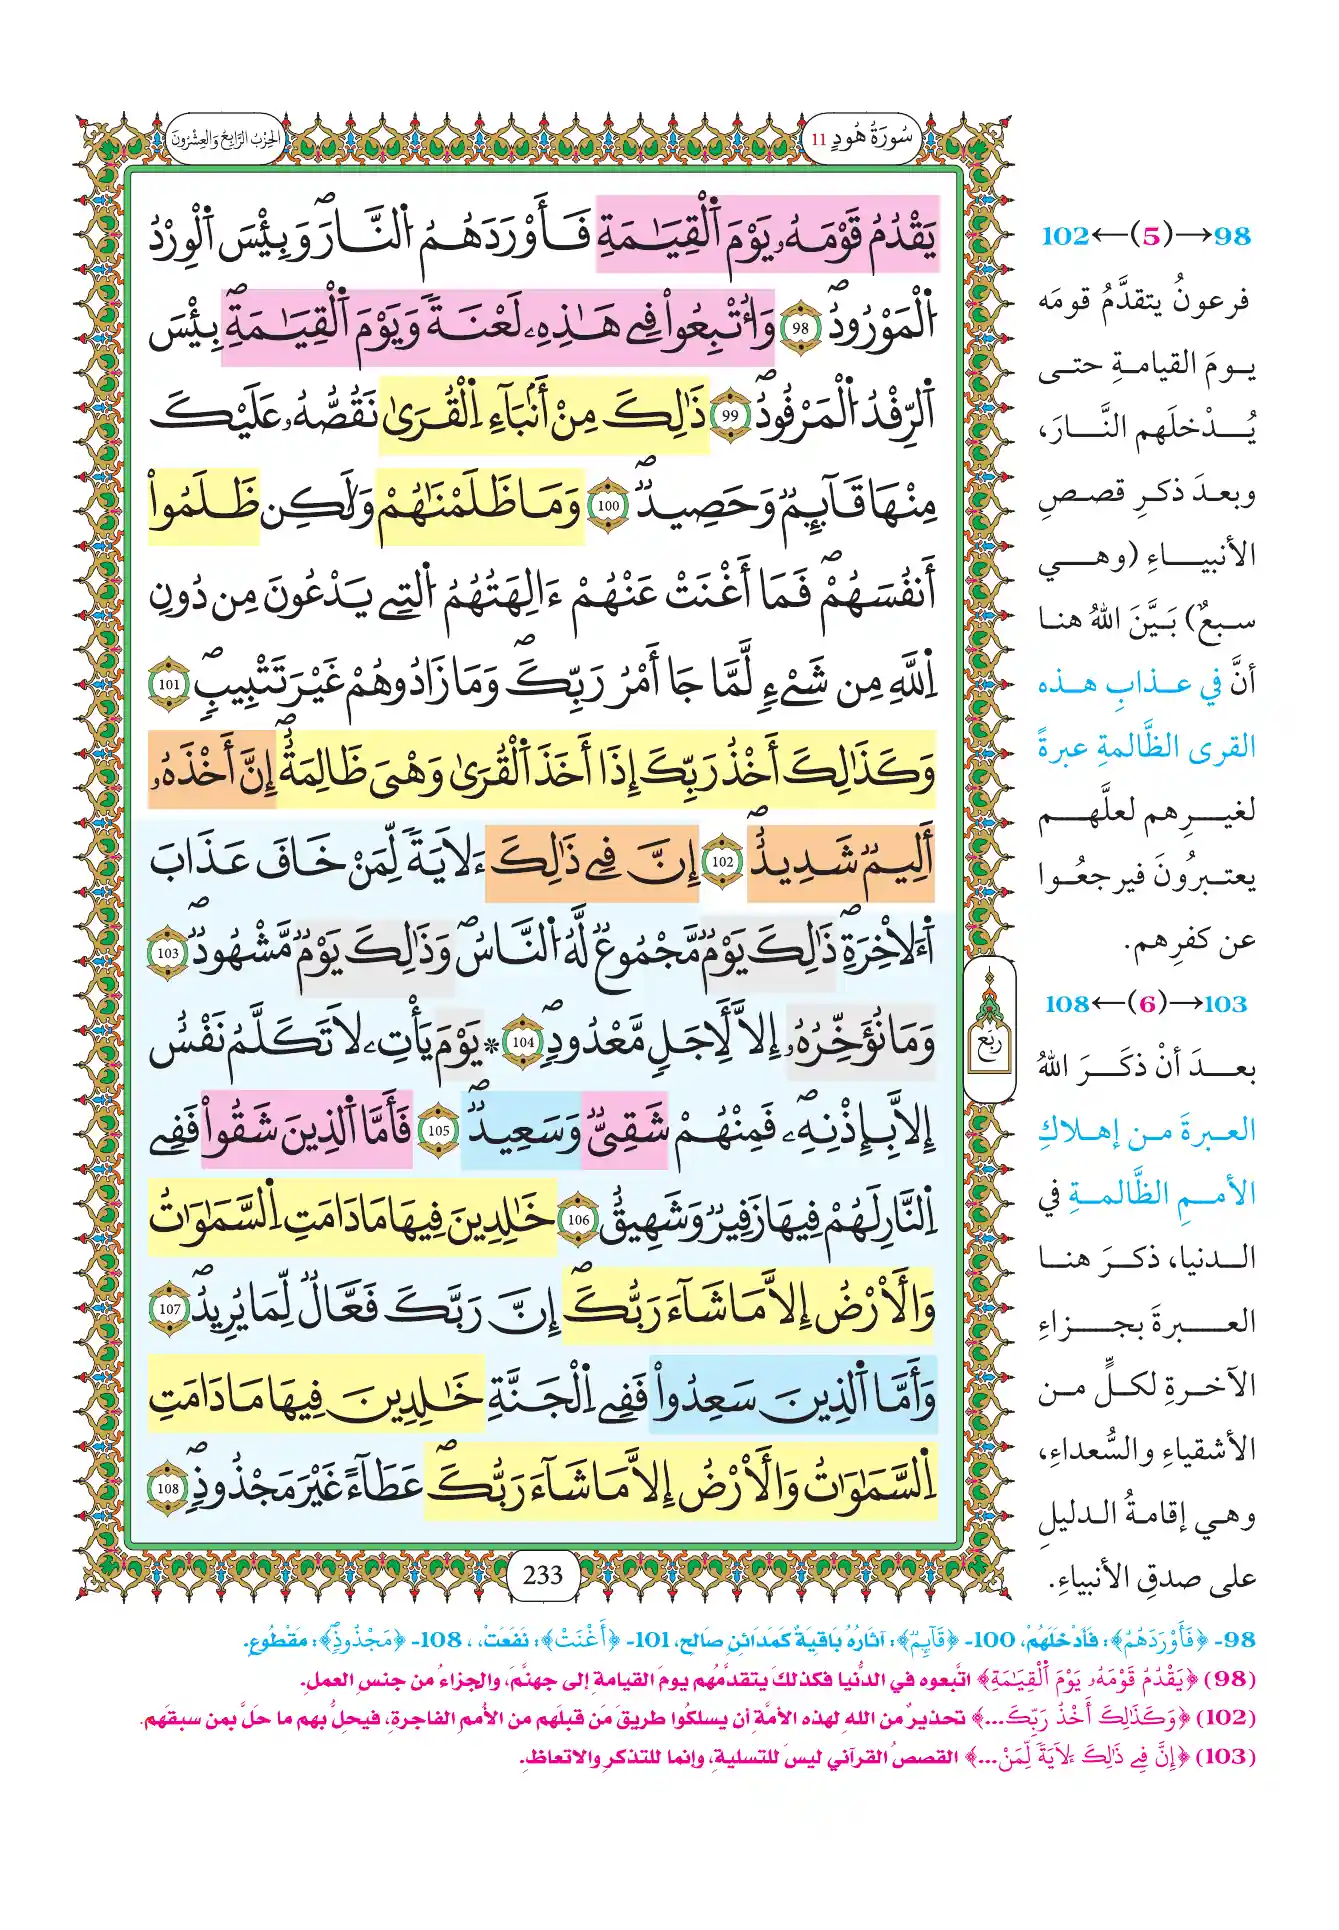 سُورَةُ هُودٍ 11
الحِزْبُ الرَّابِعُ وَالعِشْرُونَ
يَقْدُمُ قَوْمَهُۥ يَوْمَ اَ۬لْقِيَٰمَةِ فَأَوْرَدَهُمُ اُ۬لنَّارَۖ وَبِئْسَ اَ۬لْوِرْدُ
اُ۬لْمَوْرُودُۖ 98 وَأُتْبِعُواْ فِے هَٰذِهِۦ لَعْنَةٗ وَيَوْمَ اَ۬لْقِيَٰمَةِۖ بِئْسَ
اَ۬لرِّفْدُ اُ۬لْمَرْفُودُۖ 99 ذَٰلِكَ مِنْ أَنۢبَآءِ اِ۬لْقُر۪ىٰ نَقُصُّهُۥ عَلَيْكَ
مِنْهَا قَآئِمٞ وَحَصِيدٞۖ 100 وَمَا ظَلَمْنَٰهُمْ وَلَٰكِن ظَلَمُواْ
أَنفُسَهُمْۖ فَمَا أَغْنَتْ عَنْهُمْ ءَالِهَتُهُمُ اُ۬لتِے يَدْعُونَ مِن دُونِ
اِ۬للَّهِ مِن شَےْءٖ لَّمَّا جَا أَمْرُ رَبِّكَۖ وَمَا زَادُوهُمْ غَيْرَ تَتْبِيبٖۖ 101
وَكَذَٰلِكَ أَخْذُ رَبِّكَ إِذَا أَخَذَ اَ۬لْقُر۪ىٰ وَهْىَ ظَٰلِمَةٌۖ إِنَّ أَخْذَهُۥ
أَلِيمٞ شَدِيدٌۖ 102 إِنَّ فِے ذَٰلِكَ ءَلَايَةٗ لِّمَنْ خَافَ عَذَابَ
اَ۬ءَلَاخِرَةِۖ ذَٰلِكَ يَوْمٞ مَّجْمُوعٞ لَّهُ اُ۬لنَّاسُۖ وَذَٰلِكَ يَوْمٞ مَّشْهُودٞۖ 103
وَمَا نُؤَخِّرُهُۥ إِلَّا لِأَجَلٖ مَّعْدُودٖۖ 104 ۞ يَوْمَ يَأْتِۦ لَا تَكَلَّمُ نَفْسٌ
إِلَّا بِإِذْنِهِۦۖ فَمِنْهُمْ شَقِيّٞ وَسَعِيدٞۖ 105 فَأَمَّا اَ۬لذِينَ شَقُواْ فَفِے
اِ۬لنَّارِ لَهُمْ فِيهَا زَفِيرٞ وَشَهِيقٌ 106 خَٰلِدِينَ فِيهَا مَا دَامَتِ اِ۬لسَّمَٰوَٰتُ
وَالْأَرْضُ إِلَّا مَا شَآءَ رَبُّكَۖ إِنَّ رَبَّكَ فَعَّالٞ لِّمَا يُرِيدُۖ 107
وَأَمَّا اَ۬لذِينَ سَعِدُواْ فَفِے اِ۬لْجَنَّةِ خَٰلِدِينَ فِيهَا مَا دَامَتِ
اِ۬لسَّمَٰوَٰتُ وَالْأَرْضُ إِلَّا مَا شَآءَ رَبُّكَۖ عَطَآءً غَيْرَ مَجْذُوذٖۖ 108
ربع
233
98→(5)←102
فرعونُ يتقدَّمُ قومَه
يـومَ القيامـةِ حتـى
يُـدْخلَهم النَّـارَ،
وبعـدَ ذكـرِ قصـصِ
الأنبيـاءِ (وهـي
سبعٌ) بَـيَّنَ اللهُ هنـا
أنَّ في عـذابِ هـذه
القرى الظَّالمةِ عبرةً
لغيـرِهم لعلَّهـم
يعتبرُونَ فيرجعُـوا
عن كفرِهم.
103→(6)←108
بعـدَ أنْ ذكَـرَ اللهُ
العـبرةَ مـن إهـلاكِ
الأمـمِ الظَّالمـةِ في
الـدنيا، ذكـرَ هنـا
العـبرةَ بجـزاءِ
الآخـرةِ لكـلٍّ مـن
الأشقياءِ والسُّعداءِ،
وهـي إقامـةُ الـدليلِ
على صدقِ الأنبياءِ.
98- ﴿فَأَوْرَدَهُمُ﴾: فَأَدْخَلَهُمْ، 100- ﴿قَآئِمٞ﴾: آثَارُهُ بَاقِيَةٌ كَمَدَائِنِ صَالِحٍ، 101- ﴿أَغْنَتْ﴾: نَفَعَتْ، ، 108- ﴿مَجْذُوذٖۖ﴾: مَقْطُوعٍ.
(98) ﴿يَقْدُمُ قَوْمَهُۥ يَوْمَ اَ۬لْقِيَٰمَةِ﴾ اتَّبعوه في الدُّنيا فكذلكَ يتقدَّمُهم يومَ القيامةِ إلى جهنَّمَ، والجزاءُ من جنسِ العملِ.
(102) ﴿وَكَذَٰلِكَ أَخْذُ رَبِّكَ ...﴾ تحذيرٌ من اللهِ لهذه الأمَّةِ أن يسلكُوا طريقَ مَن قبلَهم من الأُممِ الفاجرةِ، فيحلُّ بهم ما حلَّ بمن سبقهَم.
(103) ﴿إِنَّ فِے ذَٰلِكَ ءَلَايَةٗ لِّمَنْ ...﴾ القصصُ القرآني ليسَ للتسليةِ، وإنما للتذكرِ والاتعاظِ.